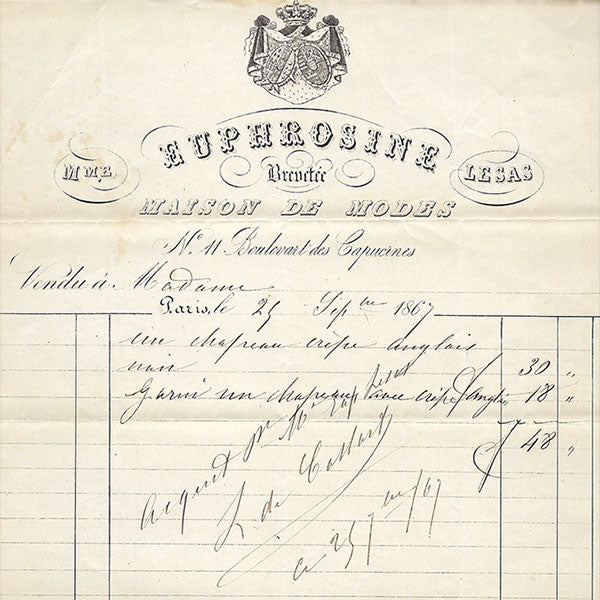 EUPHROSINE
MME. Brevetée LESAS
MAISON DE MODES
No. 11 Boulevart des Capucines
Vendu à Madame
Paris, le 25 Sep bre 1867
un chapeau crêpe anglais
noir 30 "
Garni un chapeau avec crêpe anglais 18 "
48 "
acquit pr Me Eup Lesas
L de
ce 25 7bre/67